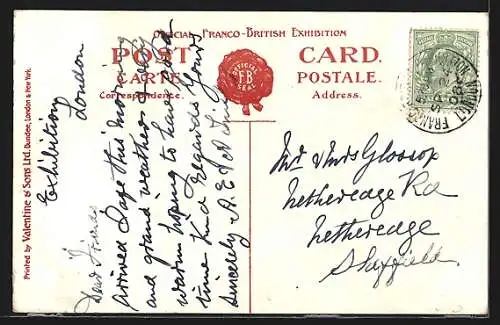 OFFICIAL FRANCO-BRITISH EXHIBITION
POST CARD.
CARTE POSTALE.
Correspondence. Address.
OFFICIAL
F.B
SEAL
Printed by Valentine & Sons Ltd. Dundee, London & New York.
Exhibition
London
Dear Friends
arrived Safe this morning
and grand weather
warm hoping to have
time Kind Regards Yours
Sincerely A. E.
Mr & Mrs Glossop
Netheredge Rd
Netheredge
Sheffield